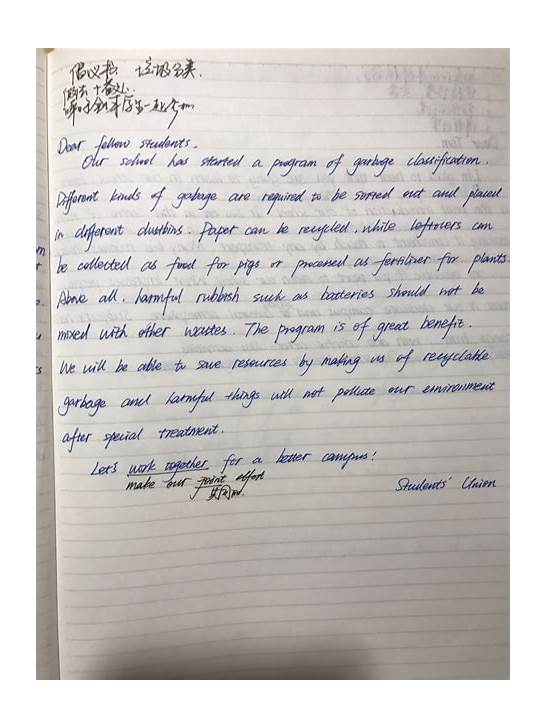 倡议书 垃圾分类.
Dear fellow students.
Our school has started a program of garbage classification.
Different kinds of gabage are required to be sorted out and placed
in different dustbins. Paper can be recycled, while leftovers can
be collected as food for pigs or processed as fertilizer for plants.
Above all, harmful rubbish such as batteries should not be
mixed with other wastes. The program is of great benefit.
We will be able to save resources by making us of recyclable
garbage and harmful things will not pollute our environment
after special treatment.
Let's work together for a better campus!
make our joint effort
共同
Students' Union